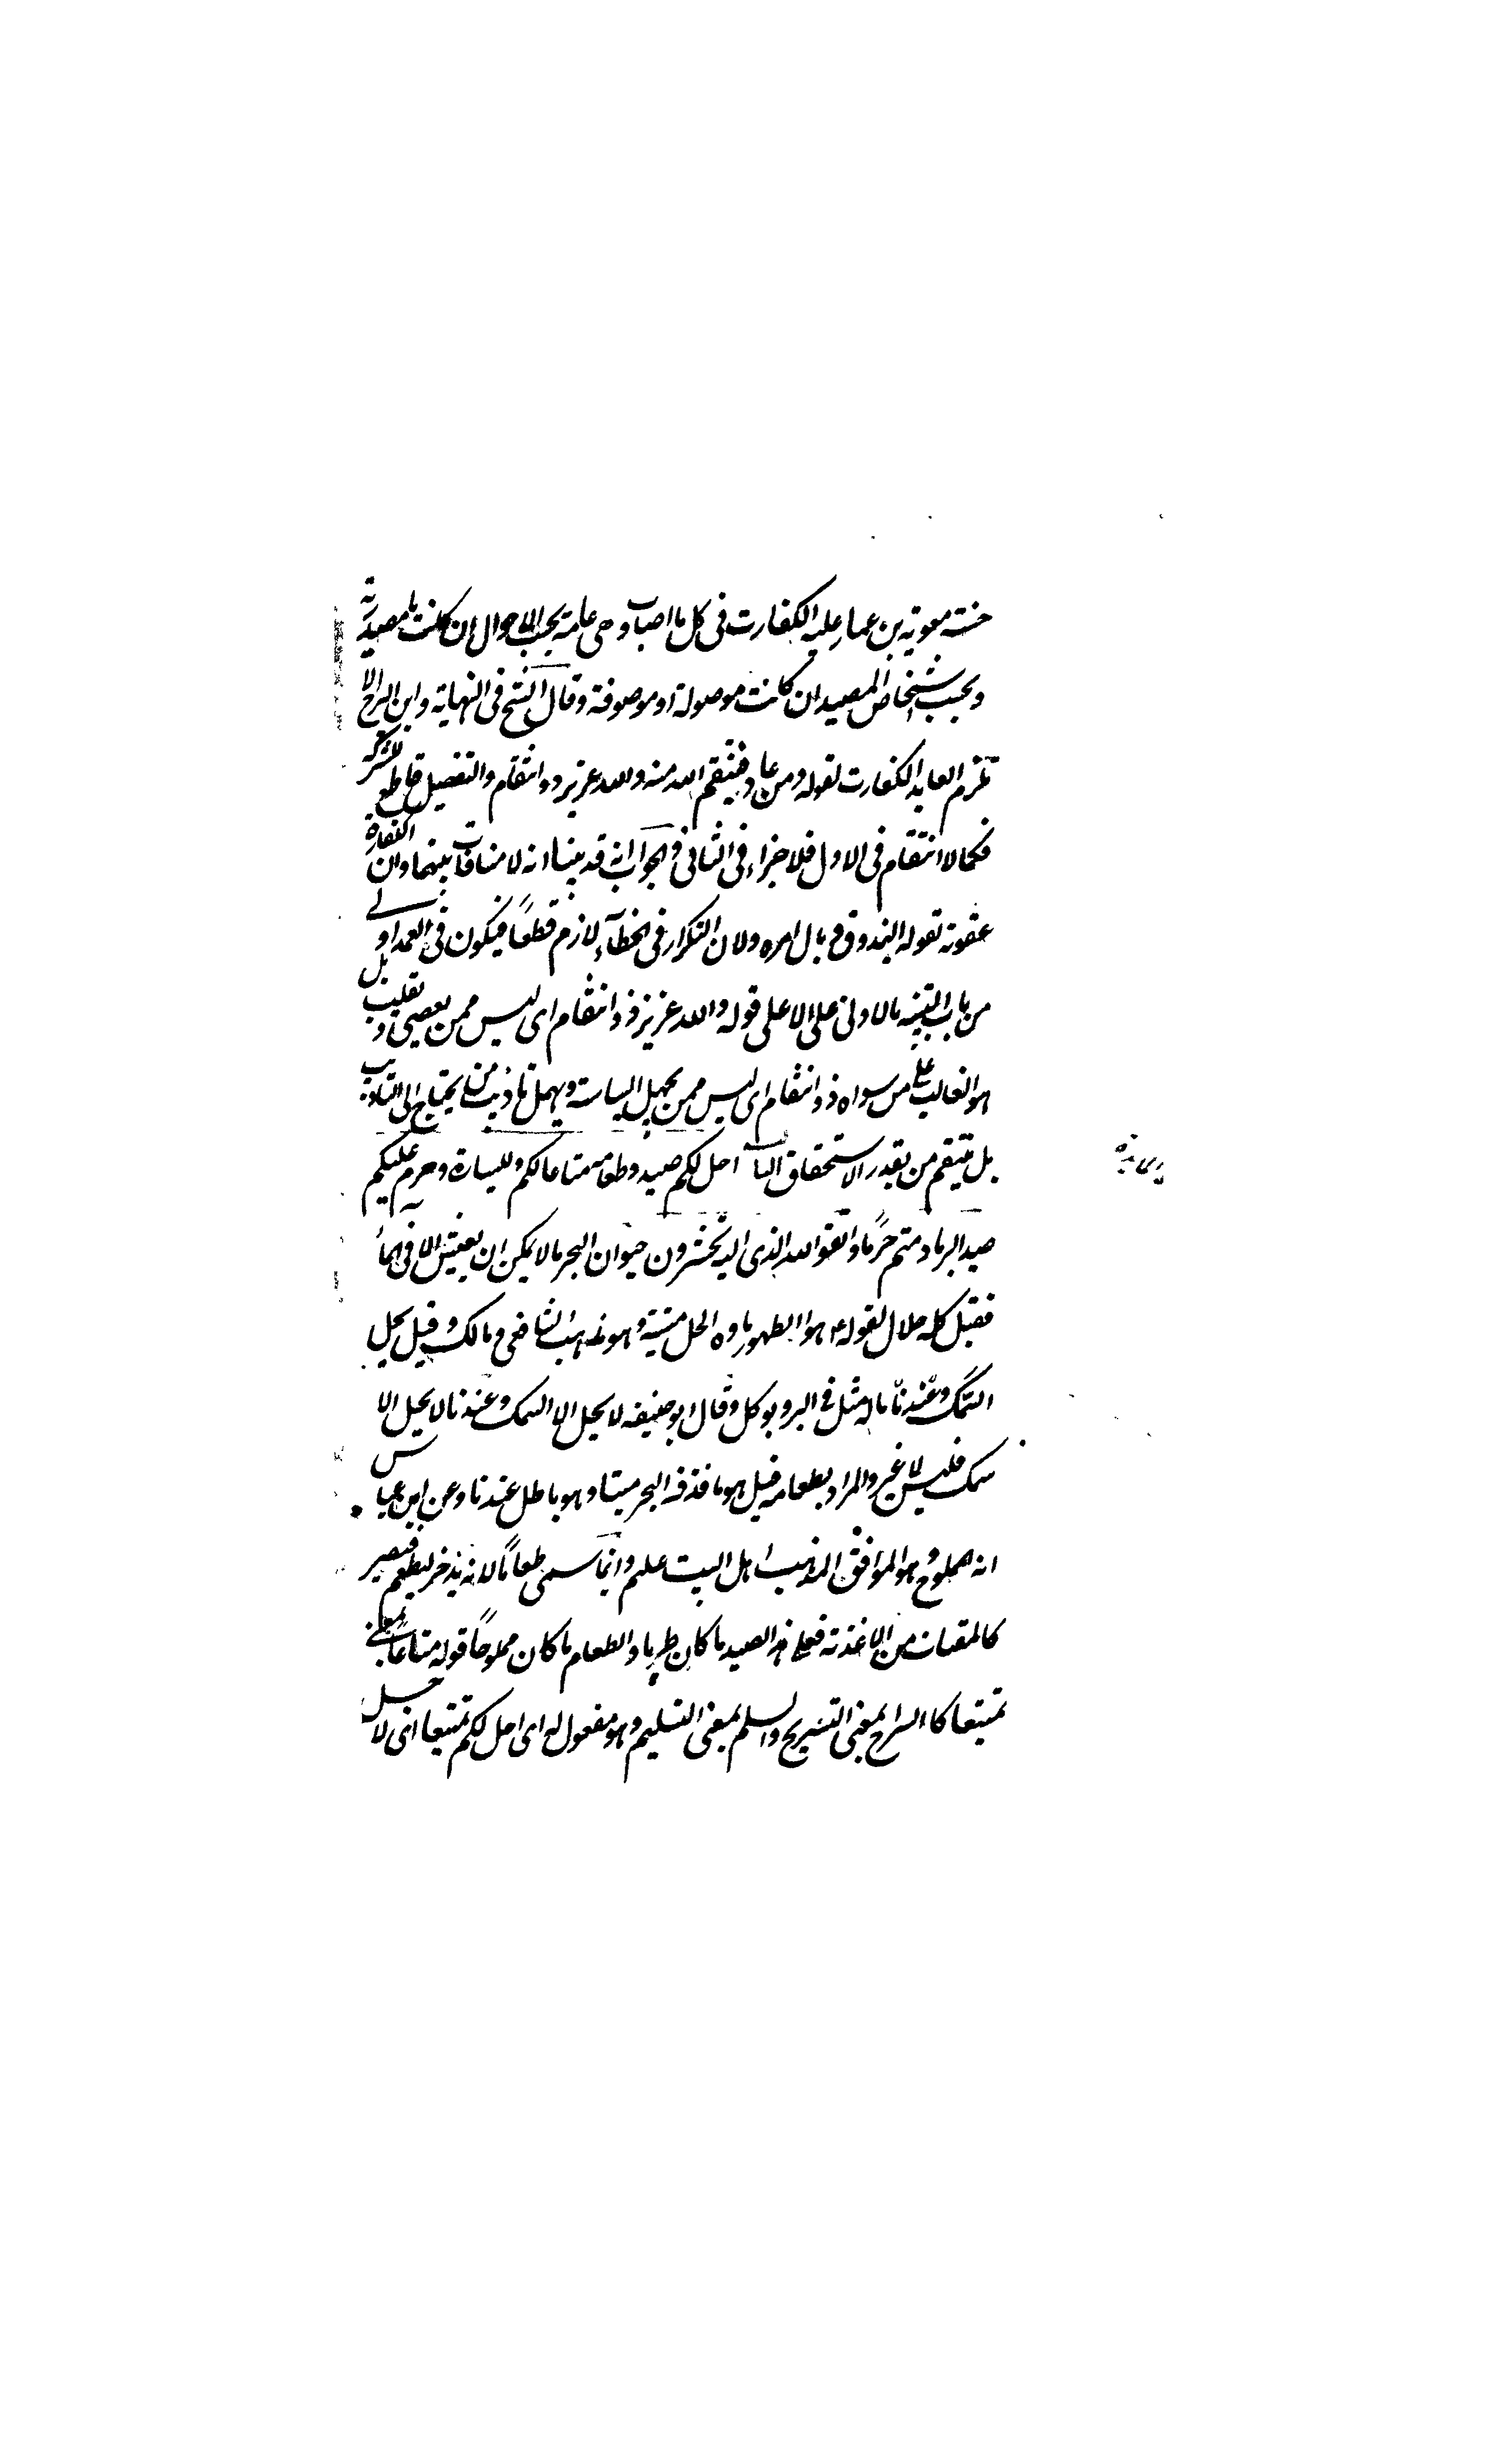 حسنة معوية بن عمار عليه الكفارت فى كل ما اصاب وهى عامة بحسب الاحوال ان كانت ما مصدرية
وبحسب اشخاص المصيد ان كانت موصولة او موصوفة وقال الشيخ فى النهاية وابن البراج لا
تلزم العايد الكفارت لقوله ومن عاد فينتقم الله منه والله عزيز ذو انتقام والتفصيل قاطع للشركة
فكما لا انتقام فى الاول فلا جزاء فى الثانى والجواب انه قد بينا انه لا منافات بينهما وان الكفارة
عقوبة لقوله ليذوق وبال امره ولان التكرار فى الخطاء لازم قطعًا فيكون فى العمد اولى
من باب التنبيه بالادنى على الاعلى قوله والله عزيز ذو انتقام اى ليس ممن يعصى ويغلب بل
هو الغالب على من سواه ذو انتقام اى ليس ممن يهمل السياسة ويهمل تاديب من يحتاج الى التاديب
بل ينتقم من بقدر الاستحقاق احل لكم صيد وطعامه متاعا لكم وللسيارة وحرم عليكم
صيد البر ما دمتم حرمًا واتقوا الله الذى اليه تحشرون حيوان البحر ما لا يمكن ان يعيش الا فى الماء
فقيل كله حلال لقوله هو الطهور ماوه الحل ميتته وهو مذهب الشافعى ومالك وقيل يحل
السمك وعندنا ماله مثل فى البر ويوكل وقال ابو حنيفه لا يحل الا السمك وعندنا لا يحل الا
سمك فليس لا غير والمراد بطعامه قيل هو ما قذفه البحر ميتا وهو باطل عندنا وعن ابن عباس
انه المملوح وهو الموافق لمذهب اهل البيت عليهم وانما سمى طعامًا لانه يدخر ليطعم فيصير
كالمقتات من الاغذية فعلى هذا الصيد ما كان طريا والطعام ما كان مملوحًا قوله متاعًا بمعنى
تمتيعا كالسراح بمعنى التسريح والسلم بمعنى التسليم وهو مفعول له اى احل لكم تمتيعا اى لاجل